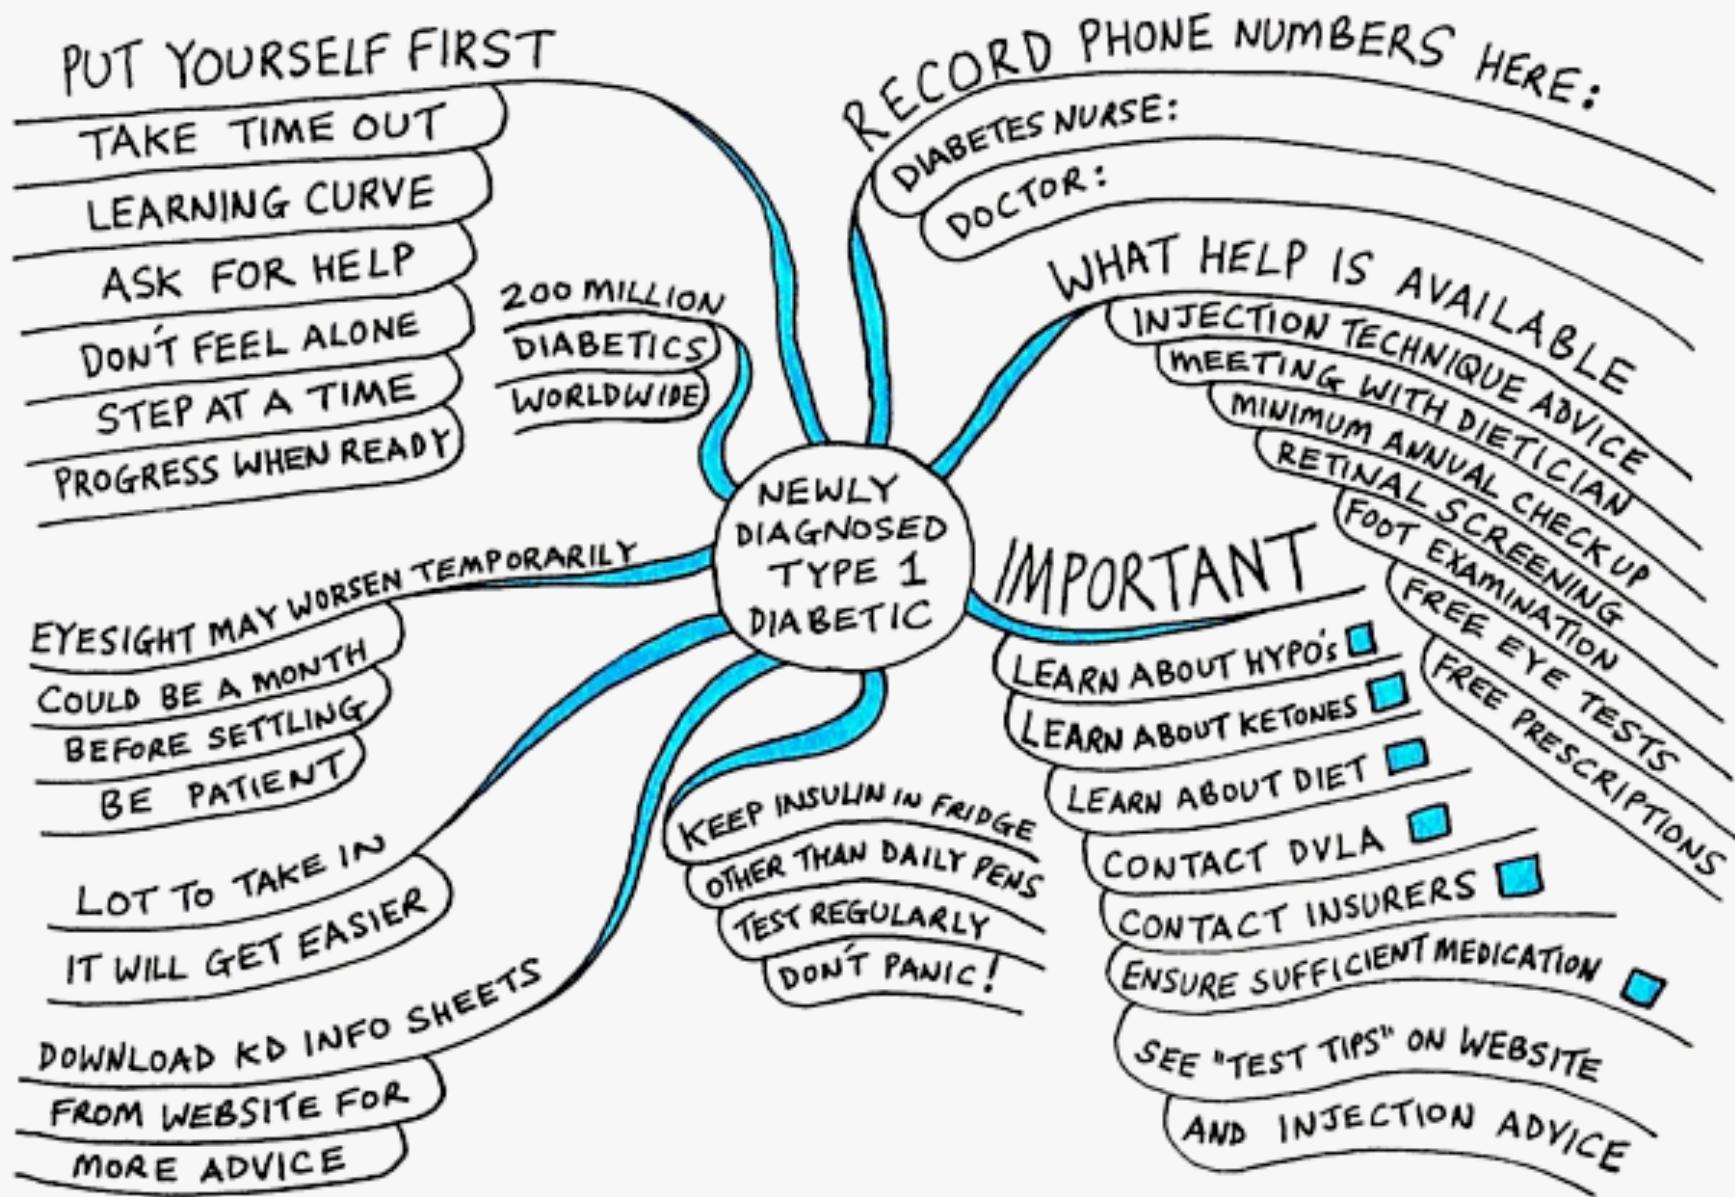 NEWLY
DIAGNOSED
TYPE 1
DIABETIC
PUT YOURSELF FIRST
TAKE TIME OUT
LEARNING CURVE
ASK FOR HELP
DON'T FEEL ALONE
STEP AT A TIME
PROGRESS WHEN READY
200 MILLION
DIABETICS
WORLDWIDE
RECORD PHONE NUMBERS HERE:
DIABETES NURSE:
DOCTOR:
WHAT HELP IS AVAILABLE
INJECTION TECHNIQUE ADVICE
MEETING WITH DIETICIAN
MINIMUM ANNUAL CHECK UP
RETINAL SCREENING
FOOT EXAMINATION
FREE EYE TESTS
FREE PRESCRIPTIONS
IMPORTANT
LEARN ABOUT HYPO'S
LEARN ABOUT KETONES
LEARN ABOUT DIET
CONTACT DVLA
CONTACT INSURERS
ENSURE SUFFICIENT MEDICATION
SEE "TEST TIPS" ON WEBSITE
AND INJECTION ADVICE
KEEP INSULIN IN FRIDGE
OTHER THAN DAILY PENS
TEST REGULARLY
DON'T PANIC!
EYESIGHT MAY WORSEN TEMPORARILY
COULD BE A MONTH
BEFORE SETTLING
BE PATIENT
LOT TO TAKE IN
IT WILL GET EASIER
DOWNLOAD KD INFO SHEETS
FROM WEBSITE FOR
MORE ADVICE